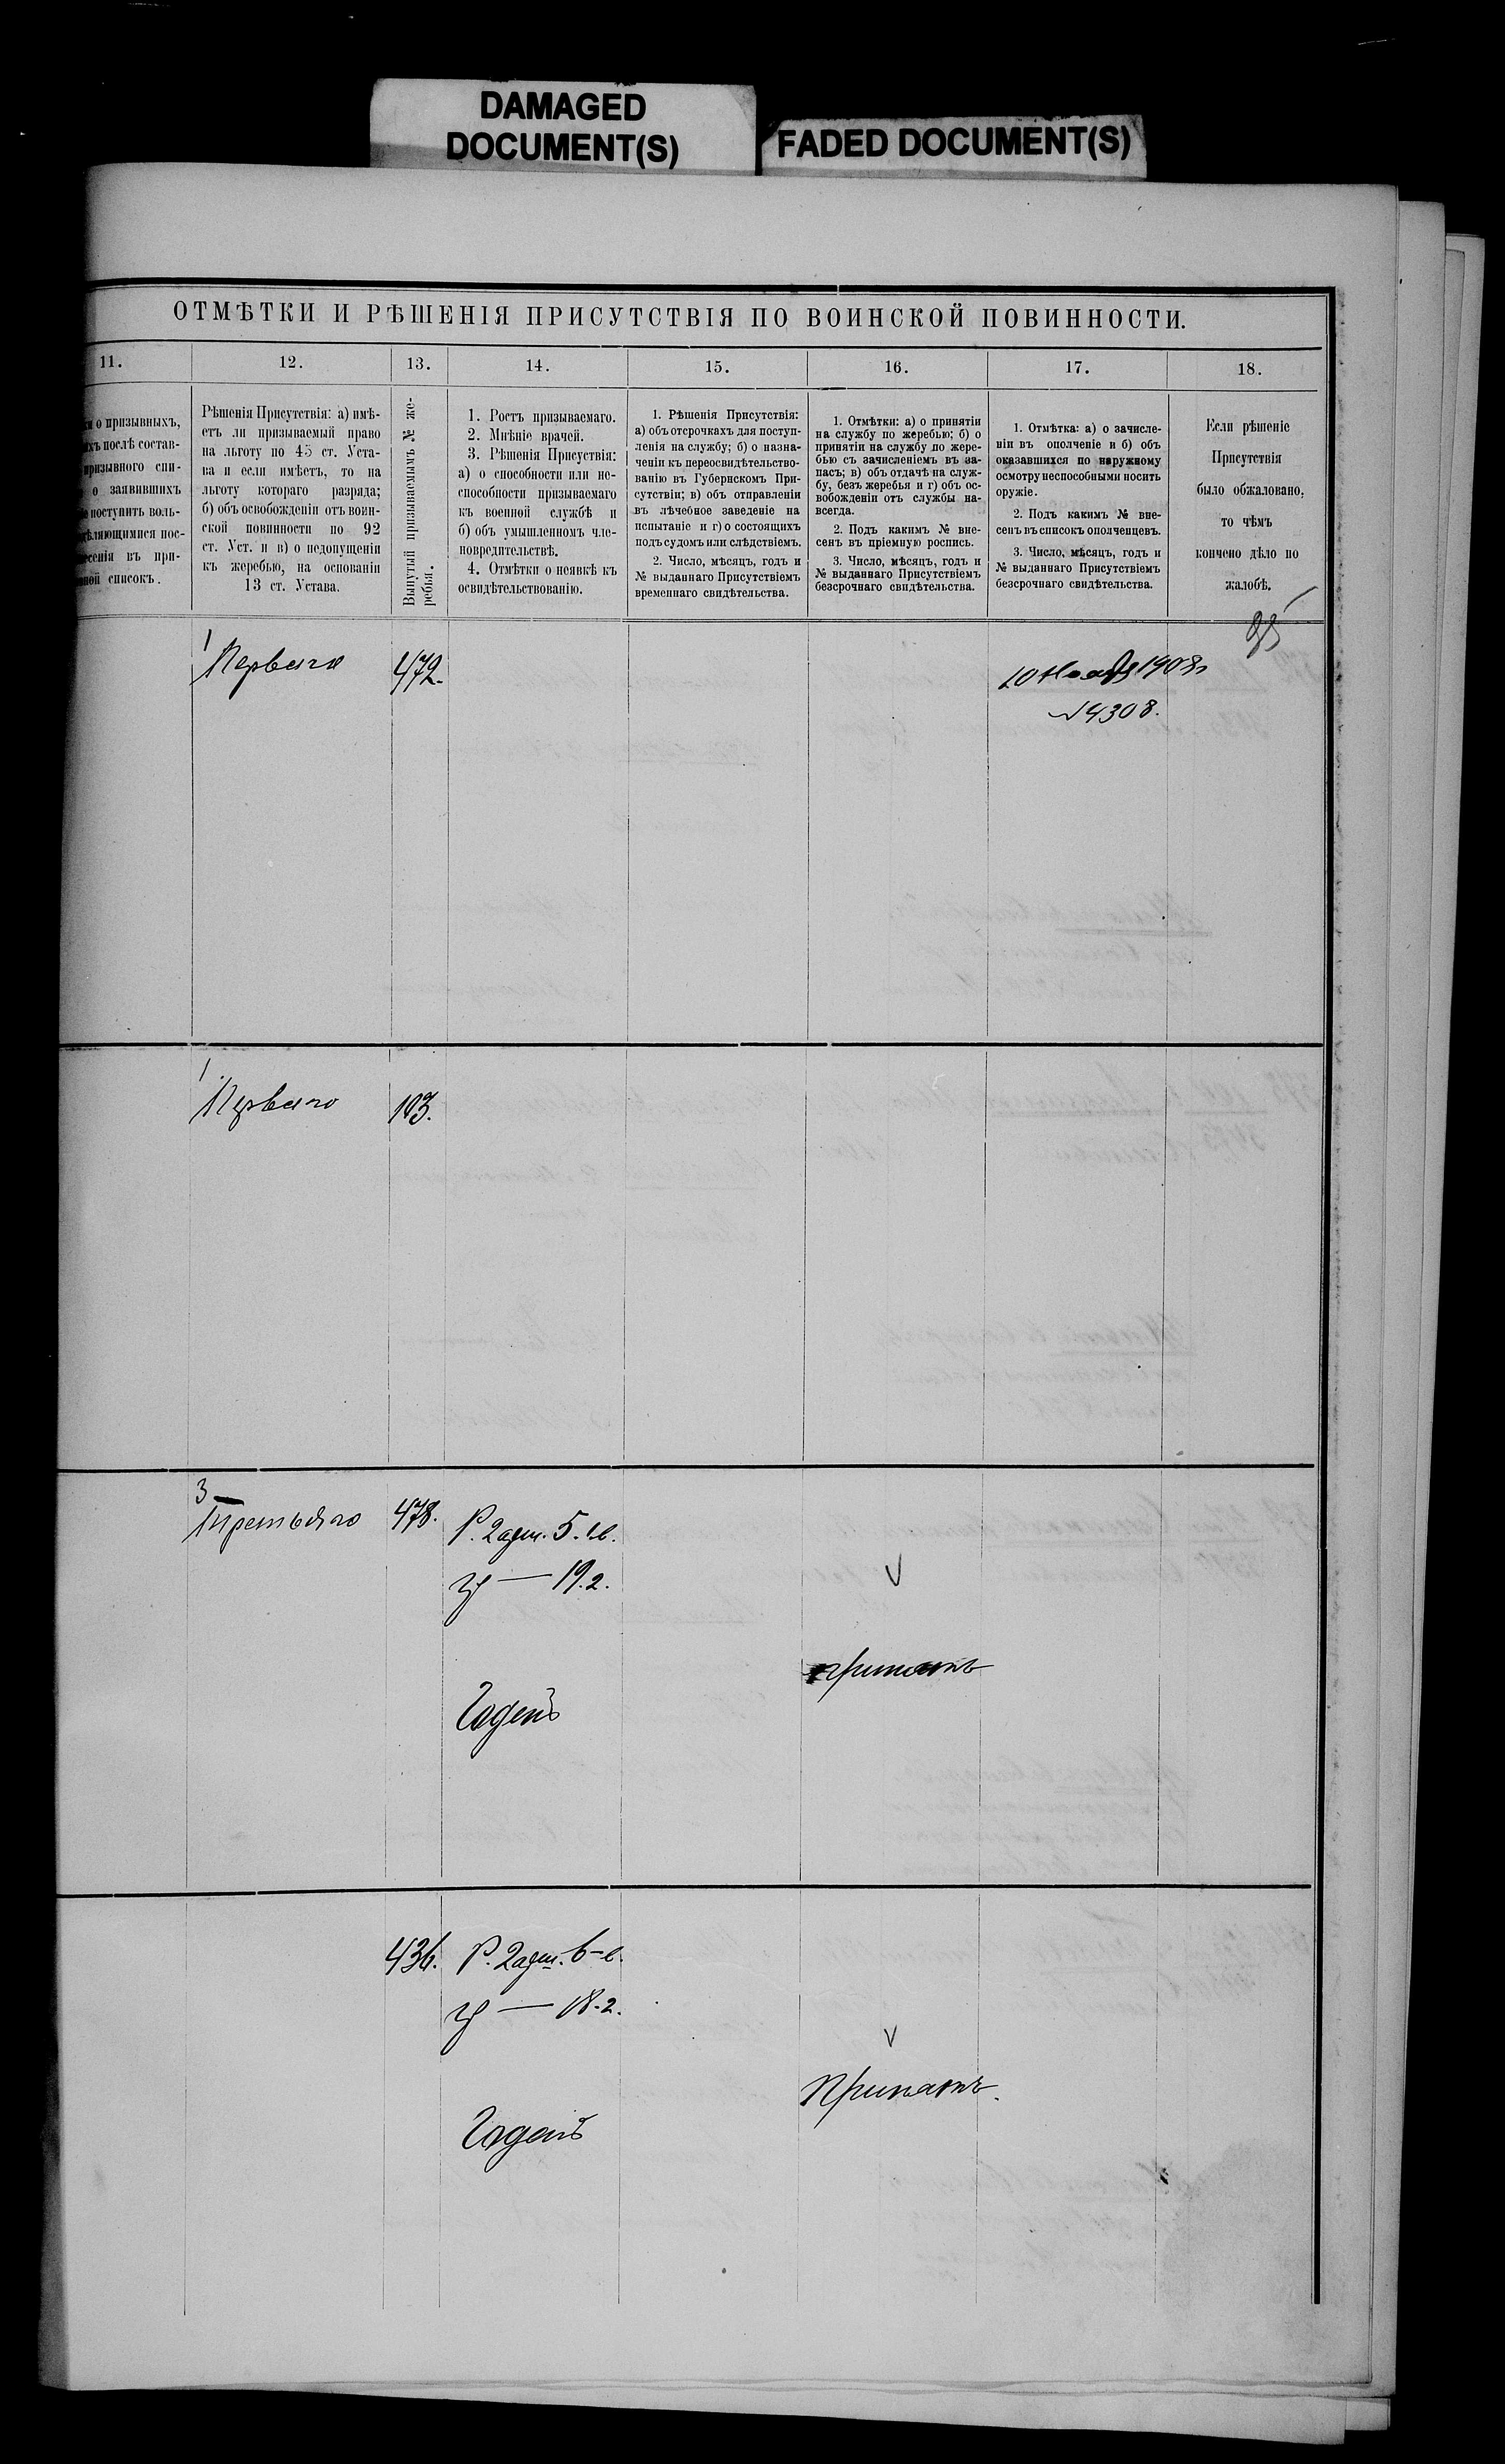 DAMAGED
DOCUMENT(S)
FADED DOCUMENT(S)
ОТМѢТКИ И РѢШЕНІЯ ПРИСУТСТВІЯ ПО ВОИНСКОЙ ПОВИННОСТИ.
11.
12.
13.
14.
15.
16.
17.
18.
о призывныхъ,
послѣ состав-
призывного спи-
о заявившихъ
поступить воль-
въ при-
списокъ.
Рѣшенія Присутствія: а) имѣ-
етъ ли призываемый право
на льготу по 45 ст. Уста-
ва и если имѣетъ, то на
льготу котораго разряда;
б) объ освобожденіи отъ воин-
ской повинности по 92
ст. Уст. и в) о недопущеніи
къ жеребью, на основаніи
13 ст. Устава.
Вынутый призываемымъ № же-
ребья.
1. Ростъ призываемаго.
2. Мнѣніе врачей.
3. Рѣшенія Присуствія:
а) о способности или не-
способности призываемаго
къ военной службѣ и
б) объ умышленномъ чле-
новредительствѣ.
4. Отмѣтки о неявкѣ къ
освидѣтельствованію.
1. Рѣшенія Присутствія:
а) объ отсрочкахъ для поступ-
ленія на службу; б) о назна-
ченіи къ переосвидѣтельство-
ванію въ Губернскомъ При-
сутствіи; в) объ отправленіи
въ лѣчебное заведеніе на
испытаніе и г) о состоящихъ
подъ судомъ или слѣдствіемъ.
2. Число, мѣсяцъ, годъ и
№ выданнаго Присутствіемъ
временнаго свидѣтельства.
1. Отмѣтки: а) о принятіи
на службу по жеребью; б) о
принятіи на службу по жере-
бью съ зачисленіемъ въ за-
пасъ; в) объ отдачѣ на служ-
бу, безъ жеребья и г) объ ос-
вобожденіи отъ службы на-
всегда.
2. Подъ какимъ № вне-
сенъ въ пріемную роспись.
3. Число, мѣсяцъ, годъ и
№ выданнаго Присутствіемъ
безсрочнаго свидѣтельства.
1. Отмѣтка: а) о зачисле-
ніи въ ополченіе и б) объ
оказавшихся по наружному
осмотру неспособными носить
оружіе.
2. Подъ какимъ № вне-
сенъ въ списокъ ополченцевъ.
3. Число, мѣсяцъ, годъ и
№ выданнаго Присутствіемъ
безсрочнаго свидѣтельства.
Если рѣшеніе
Присутствія
было обжаловано,
то чѣмъ
кончено дѣло по
жалобѣ.
1
Перваго
472.
№ 4308.
1
Перваго
103.
3
Третьяго
478.
Р. 2 арш. 5. 1/2 в.
19. 2.
Годенъ
V
принятъ
436.
Р. 2 арш. 6 - в.
18. 2.
Годенъ
V
Принятъ.